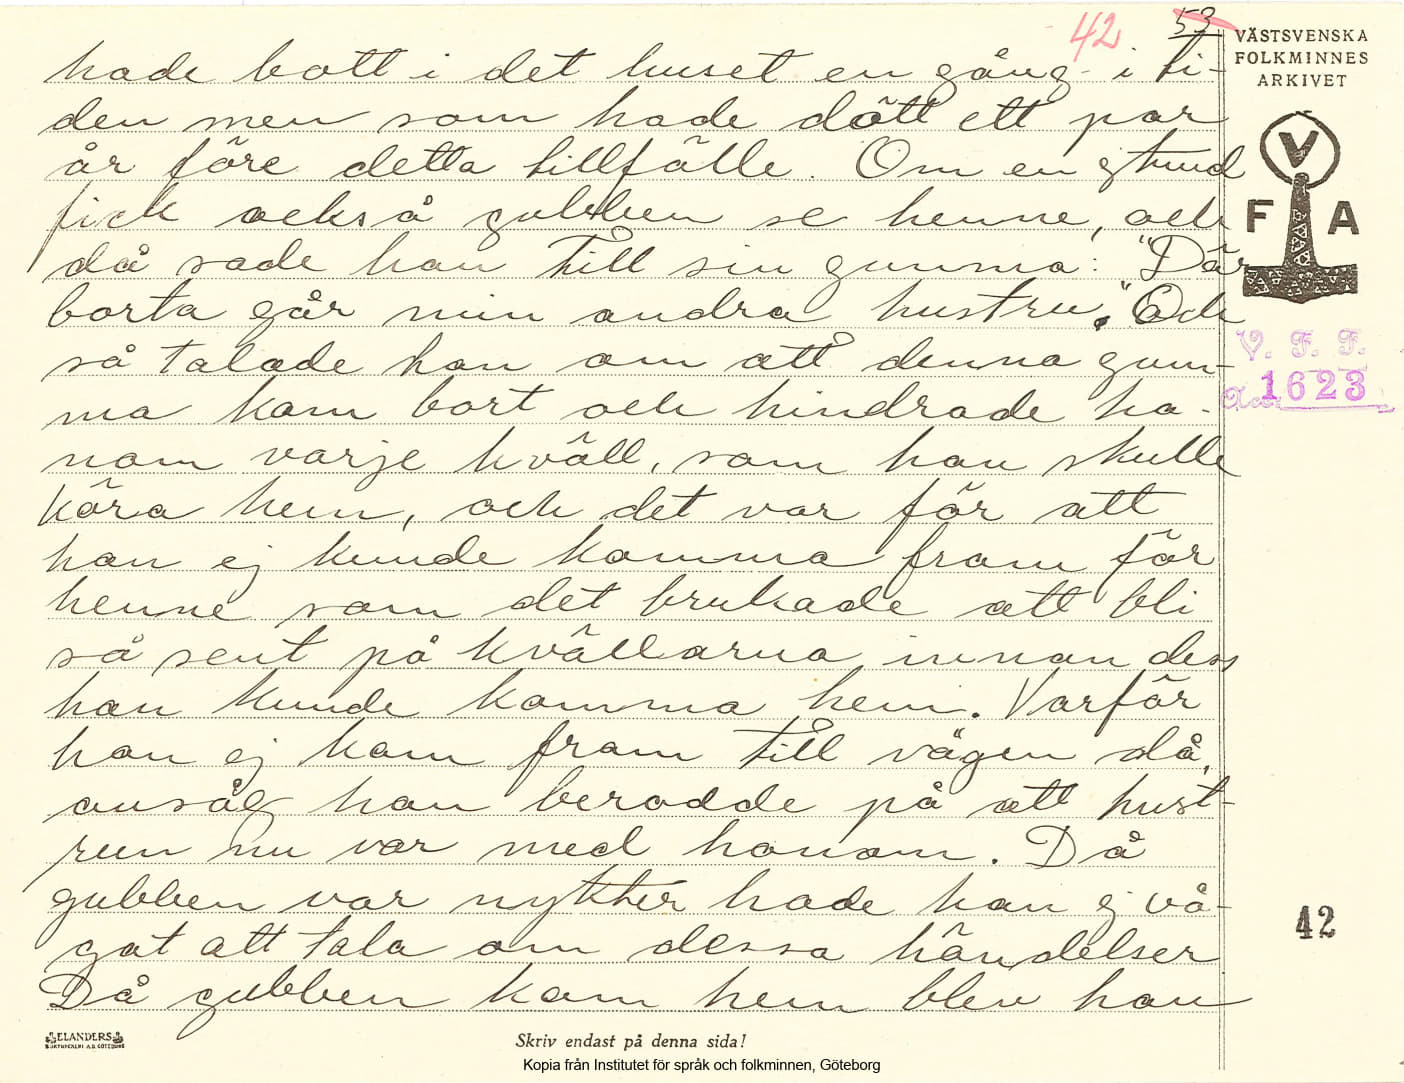 42 53
VÄSTSVENSKA
FOLKMINNES
ARKIVET
V
F A
V. F. F.
1623
hade bott i det huset en gång i ti-
den men som hade dött ett par
år före detta tillfälle. Om en stund
fick också gubben se henne, och
då sade han till sin gumma: "Där
borta går min andra hustru." Och
så talade han om att denna gum-
ma kom bort och hindrade ho-
nom varje kväll, som han skulle
köra hem, och det var för att
han ej kunde komma fram för
henne som det brukade att bli
så sent på kvällarna innan dess
han kunde komma hem. Varför
hon ej kom fram till vägen då,
ansåg han berodde på att hust-
run nu var med honom. Då
gubben var nykter hade han ej vå-
gat att tala om dessa händelser
Då gubben kom hem blev han
42
ELANDERS
BOKTRYCKERI A.B. GÖTEBORG
Skriv endast på denna sida!
Kopia från Institutet för språk och folkminnen, Göteborg